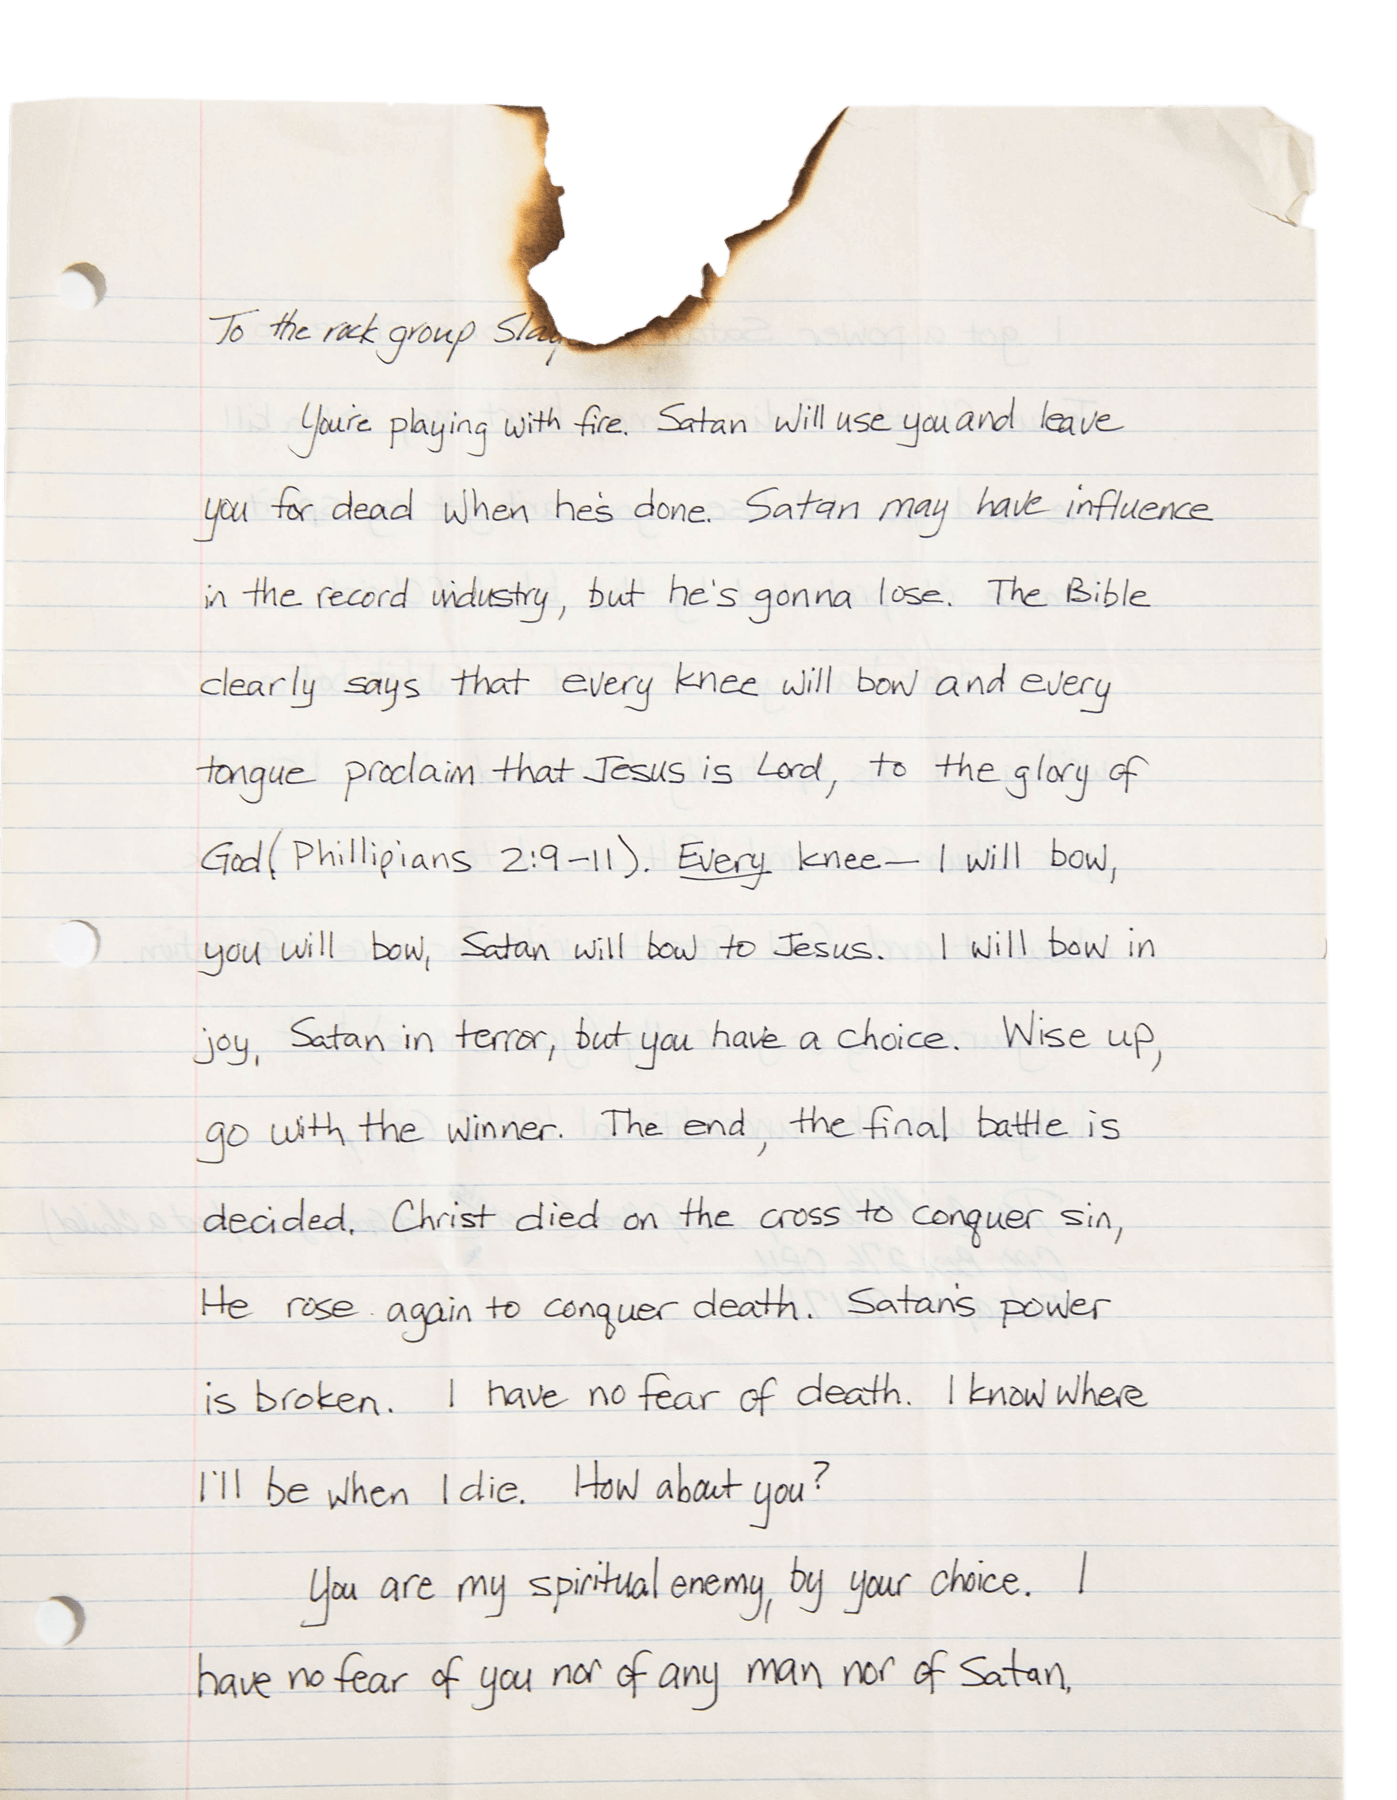 To the rock group Slay
You're playing with fire. Satan will use you and leave
you for dead when he's done. Satan may have influence
in the record industry, but he's gonna lose. The Bible
clearly says that every knee will bow and every
tongue proclaim that Jesus is Lord, to the glory of
God (Phillipians 2:9-11). Every knee— I will bow,
you will bow, Satan will bow to Jesus. I will bow in
joy, Satan in terror, but you have a choice. Wise up,
go with the winner. The end, the final battle is
decided. Christ died on the cross to conquer sin,
He rose again to conquer death. Satan's power
is broken. I have no fear of death. I know where
I'll be when I die. How about you?
You are my spiritual enemy, by your choice. I
have no fear of you nor of any man nor of Satan.